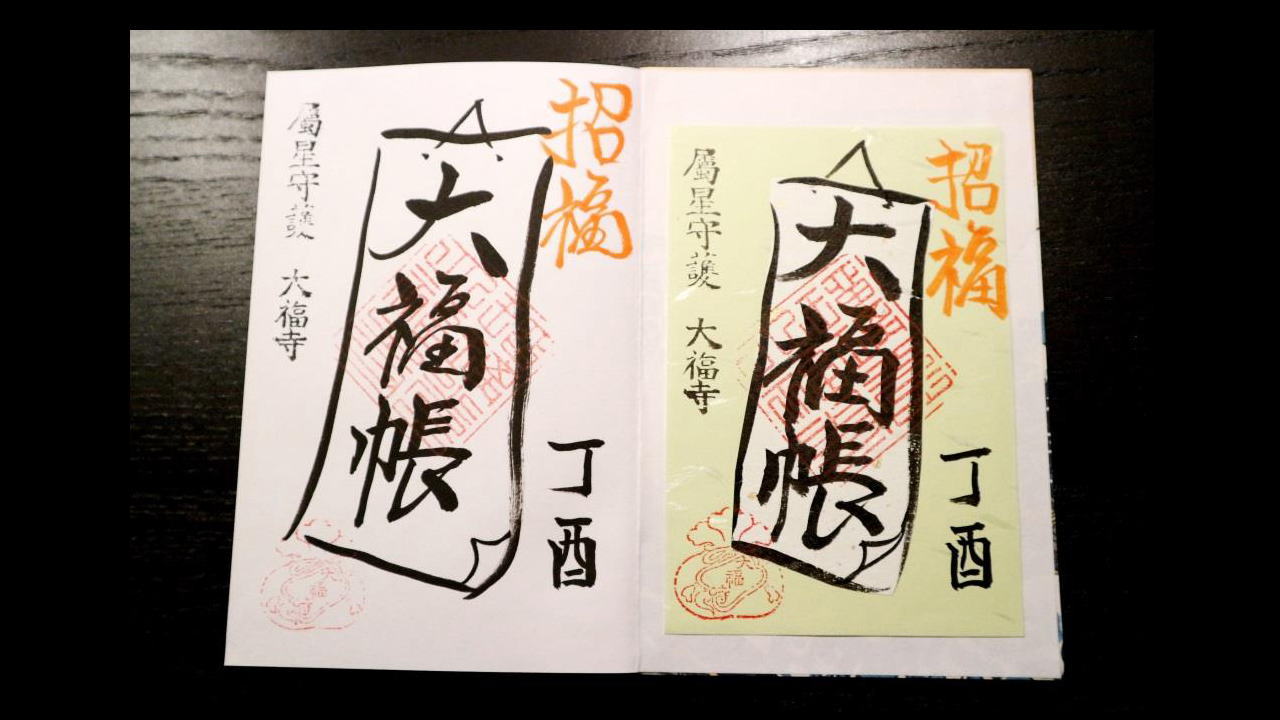 招福
丁酉
大福帳
屬星守護 大福寺
招福
丁酉
大福帳
屬星守護 大福寺
大福寺